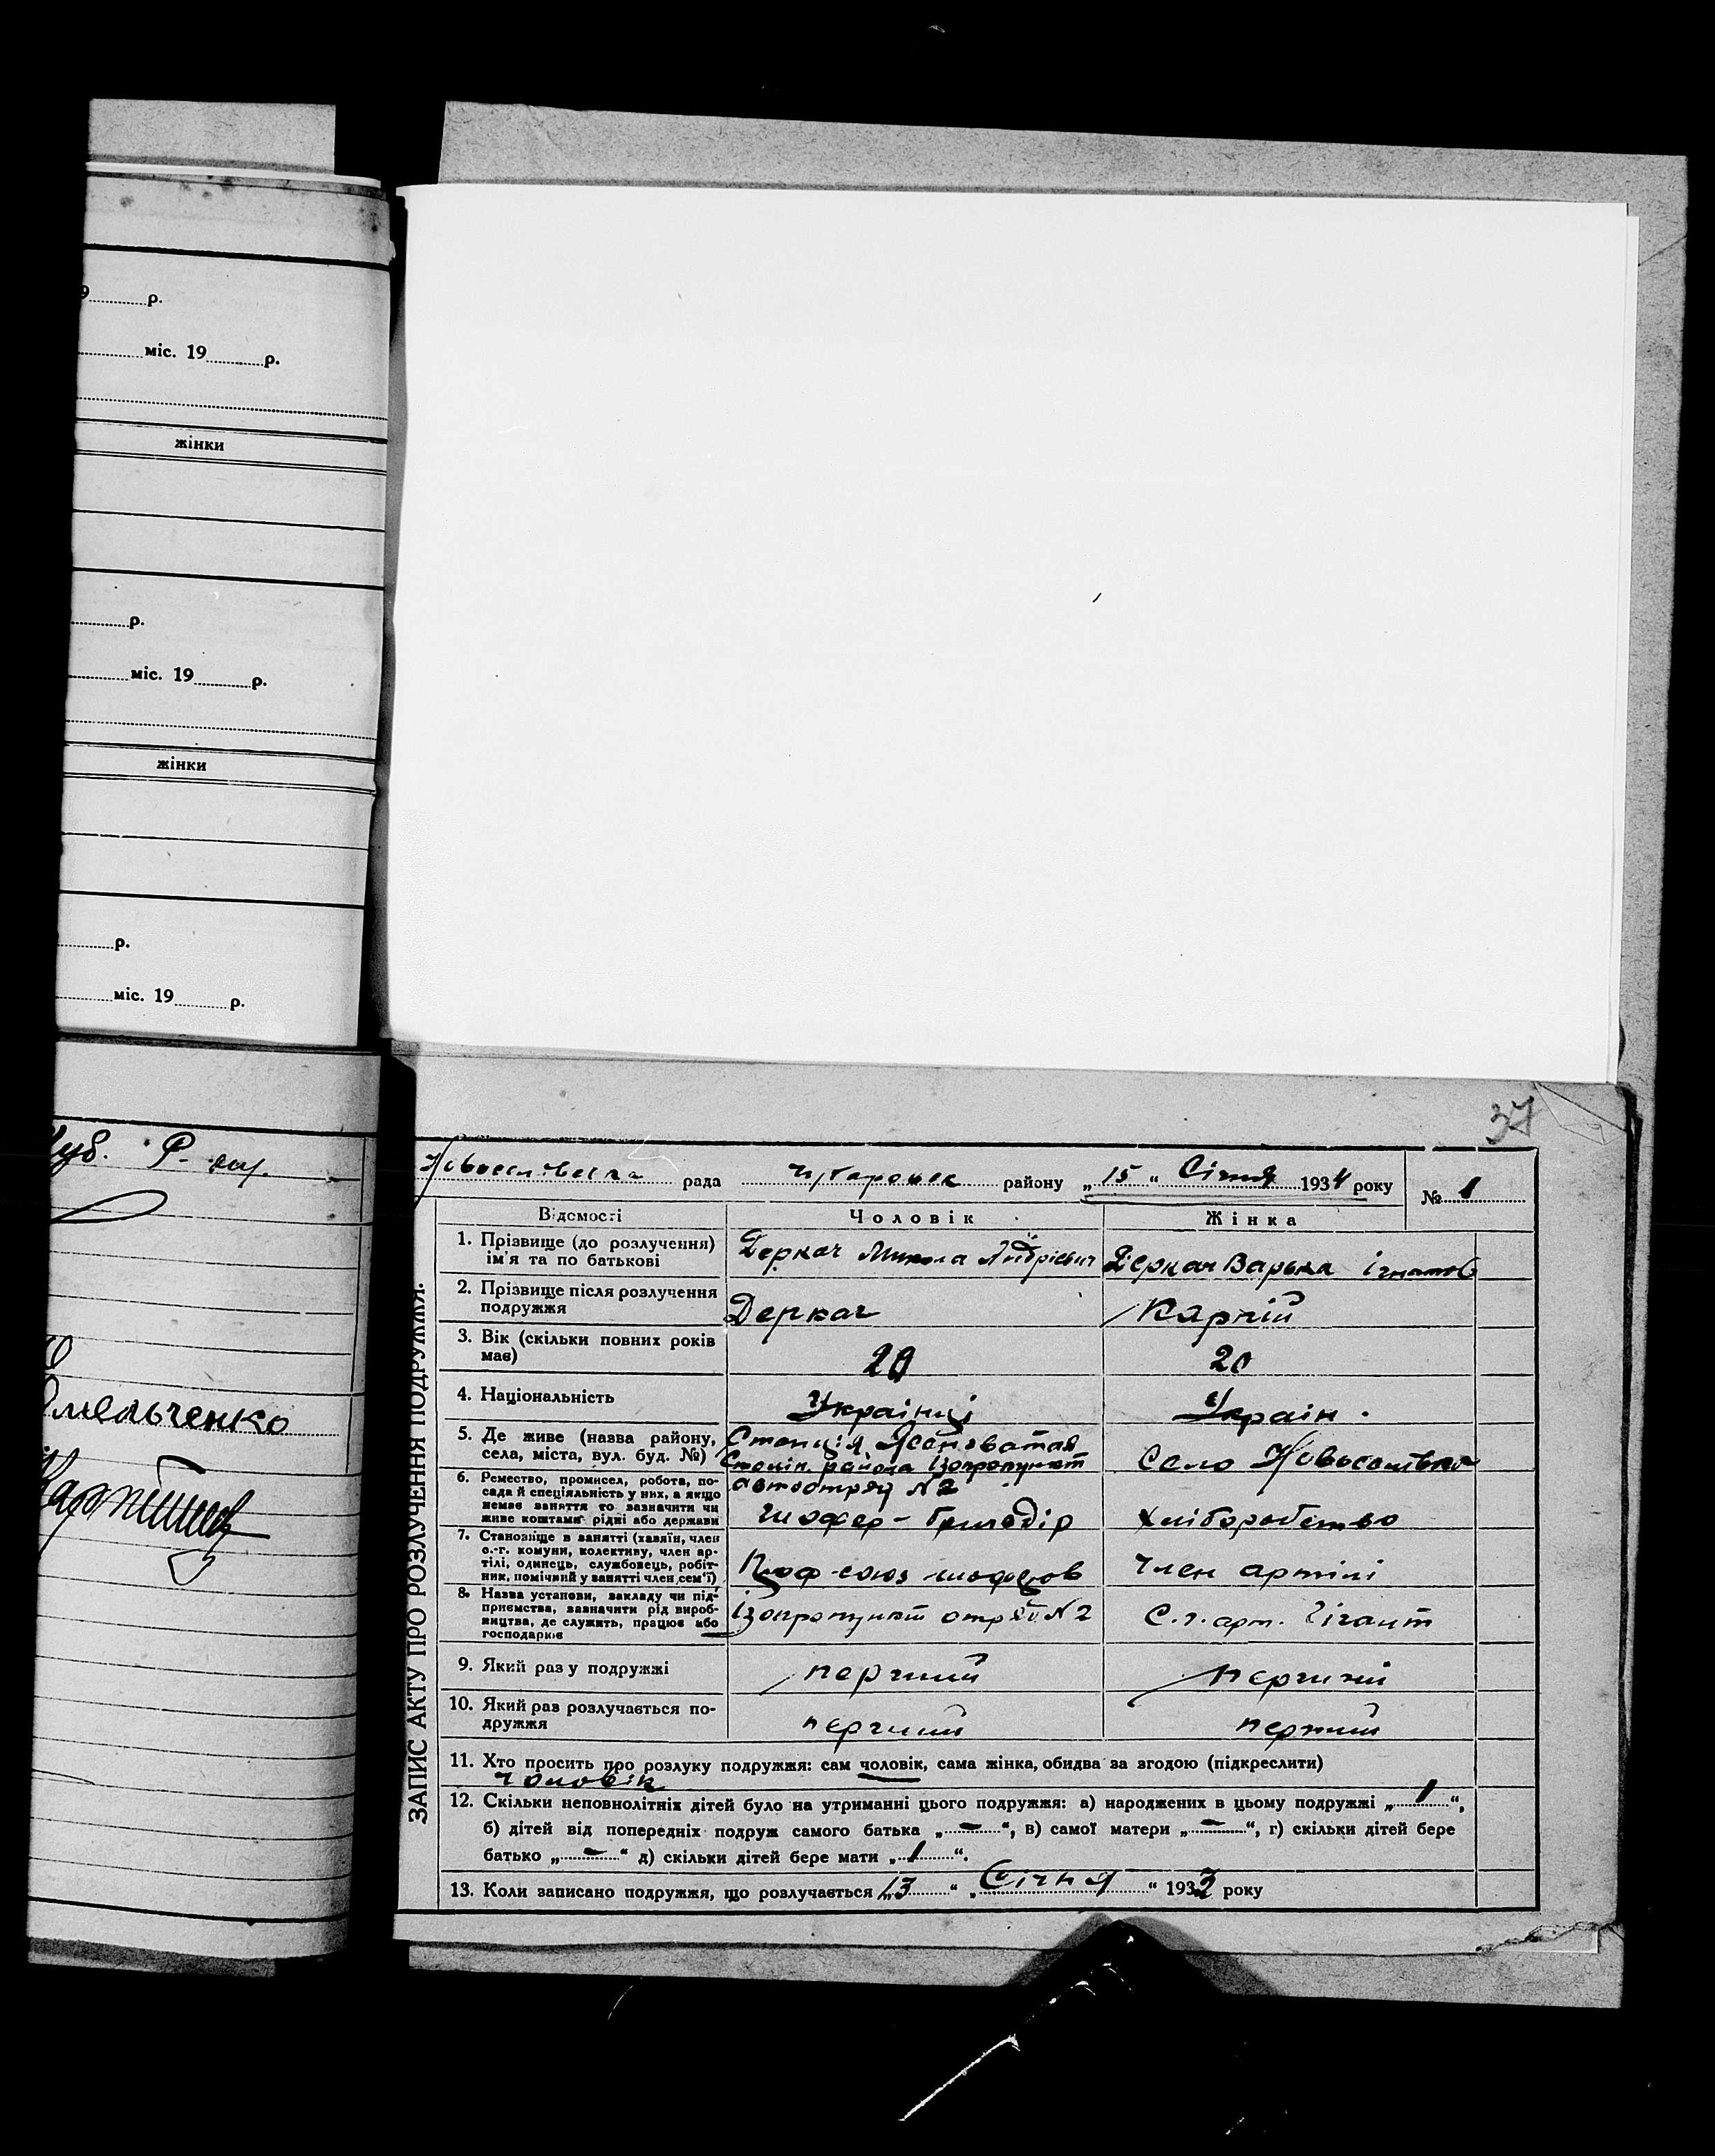 р.
міс. 19 р.
жінки
р.
міс. 19 р.
жінки
р.
міс. 19 р.
Р.
Омельченко
37
ЗАПИС АКТУ ПРО РОЗЛУЧЕННЯ ПОДРУЖЖЯ.
рада району „15“ Січня 1934 року № 1
Відомості Чоловік Жінка
1. Прізвище (до розлучення) Деркач Микола Андрієвич Деркач Варька Ігнатов
ім'я та по батькові
2. Прізвище після розлучення Деркач
подружжя
3. Вік (скільки повних років 20 20
має)
4. Національність Українці Україн.
5. Де живе (назва району, Станція Ясеноватая
села, міста, вул. буд. №) района Ізопропункт Село
автоотряд №2
6. Ремество, промисел, робота, по-
сада й спеціяльність у них, а якщо
немає заняття то зазначити чи
живе коштами рідні або держави Шофер- Хліборобство
7. Становище в занятті (хазяїн, член
с.-г. комуни, колективу, член ар-
тілі, одинець, службовець, робіт-
ник, помічний у занятті член сем'ї) Проф-союз шоферов Член артілі
8. Назва установи, закладу чи під-
приємства, зазначити рід вироб-
ництва, де служить, працює або
господарює Ізопропункт отряд №2 С.г. арт. Гігант
9. Який раз у подружжі перший перший
10. Який раз розлучається по- перший перший
дружжя
11. Хто просить про розлуку подружжя: сам чоловік, сама жінка, обидва за згодою (підкреслити)
чоловік
12. Скільки неповнолітніх дітей було на утриманні цього подружжя: а) народжених в цьому подружжі „1“,
б) дітей від попередніх подруж самого батька „-“, в) самої матери „-“, г) скільки дітей бере
батько „-“ д) скільки дітей бере мати „1“.
13. Коли записано подружжя, що розлучається „13“ „Січня“ 1932 року